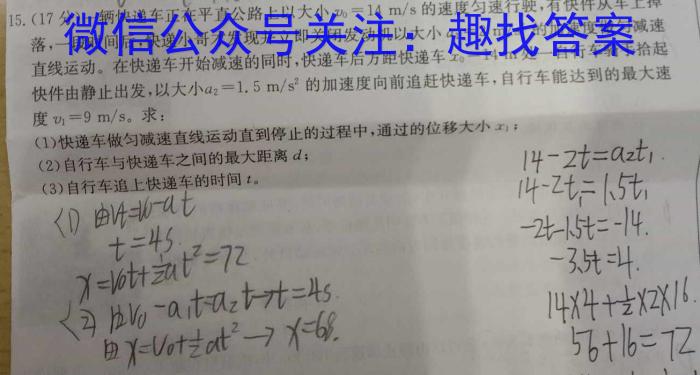 15.(17分)一辆快递车正在平直公路上以大小v₀=14 m/s 的速度匀速行驶,有快件从车上掉
微信公众号关注:趣找答案
直线运动。在快递车开始减速的同时,快递车后方距快递车
快件由静止出发,以大小a₂=1.5 m/s² 的加速度向前追赶快递车,自行车能达到的最大速
度 v₁=9 m/s。求:
(1)快递车做匀减速直线运动直到停止的过程中,通过的位移大小 x₁;
(2)自行车与快递车之间的最大距离 d;
(3)自行车追上快递车的时间 t。
<1) 由Vt=V0-at
t=4s.
x=V0t+½at²=72
<2) 由V0-a₁t=a₂t→t=4s.
由x=V0+½at²→x=68.
14-2t=a₂t₁.
14-2t₁=1.5t₁
-2t-1.5t=-14.
-3.5t=4.
14×4+½×2×16.
56+16=72